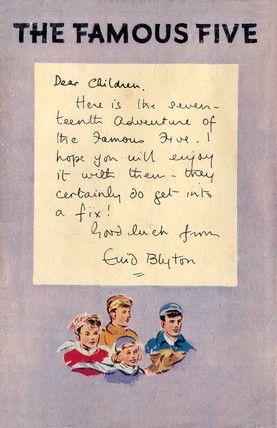 THE FAMOUS FIVE
Dear Children,
Here is the seven-
teenth Adventure of
the Famous Five. I
hope you will enjoy
it with them - they
certainly do get into
a fix!
Good luck from
Enid Blyton